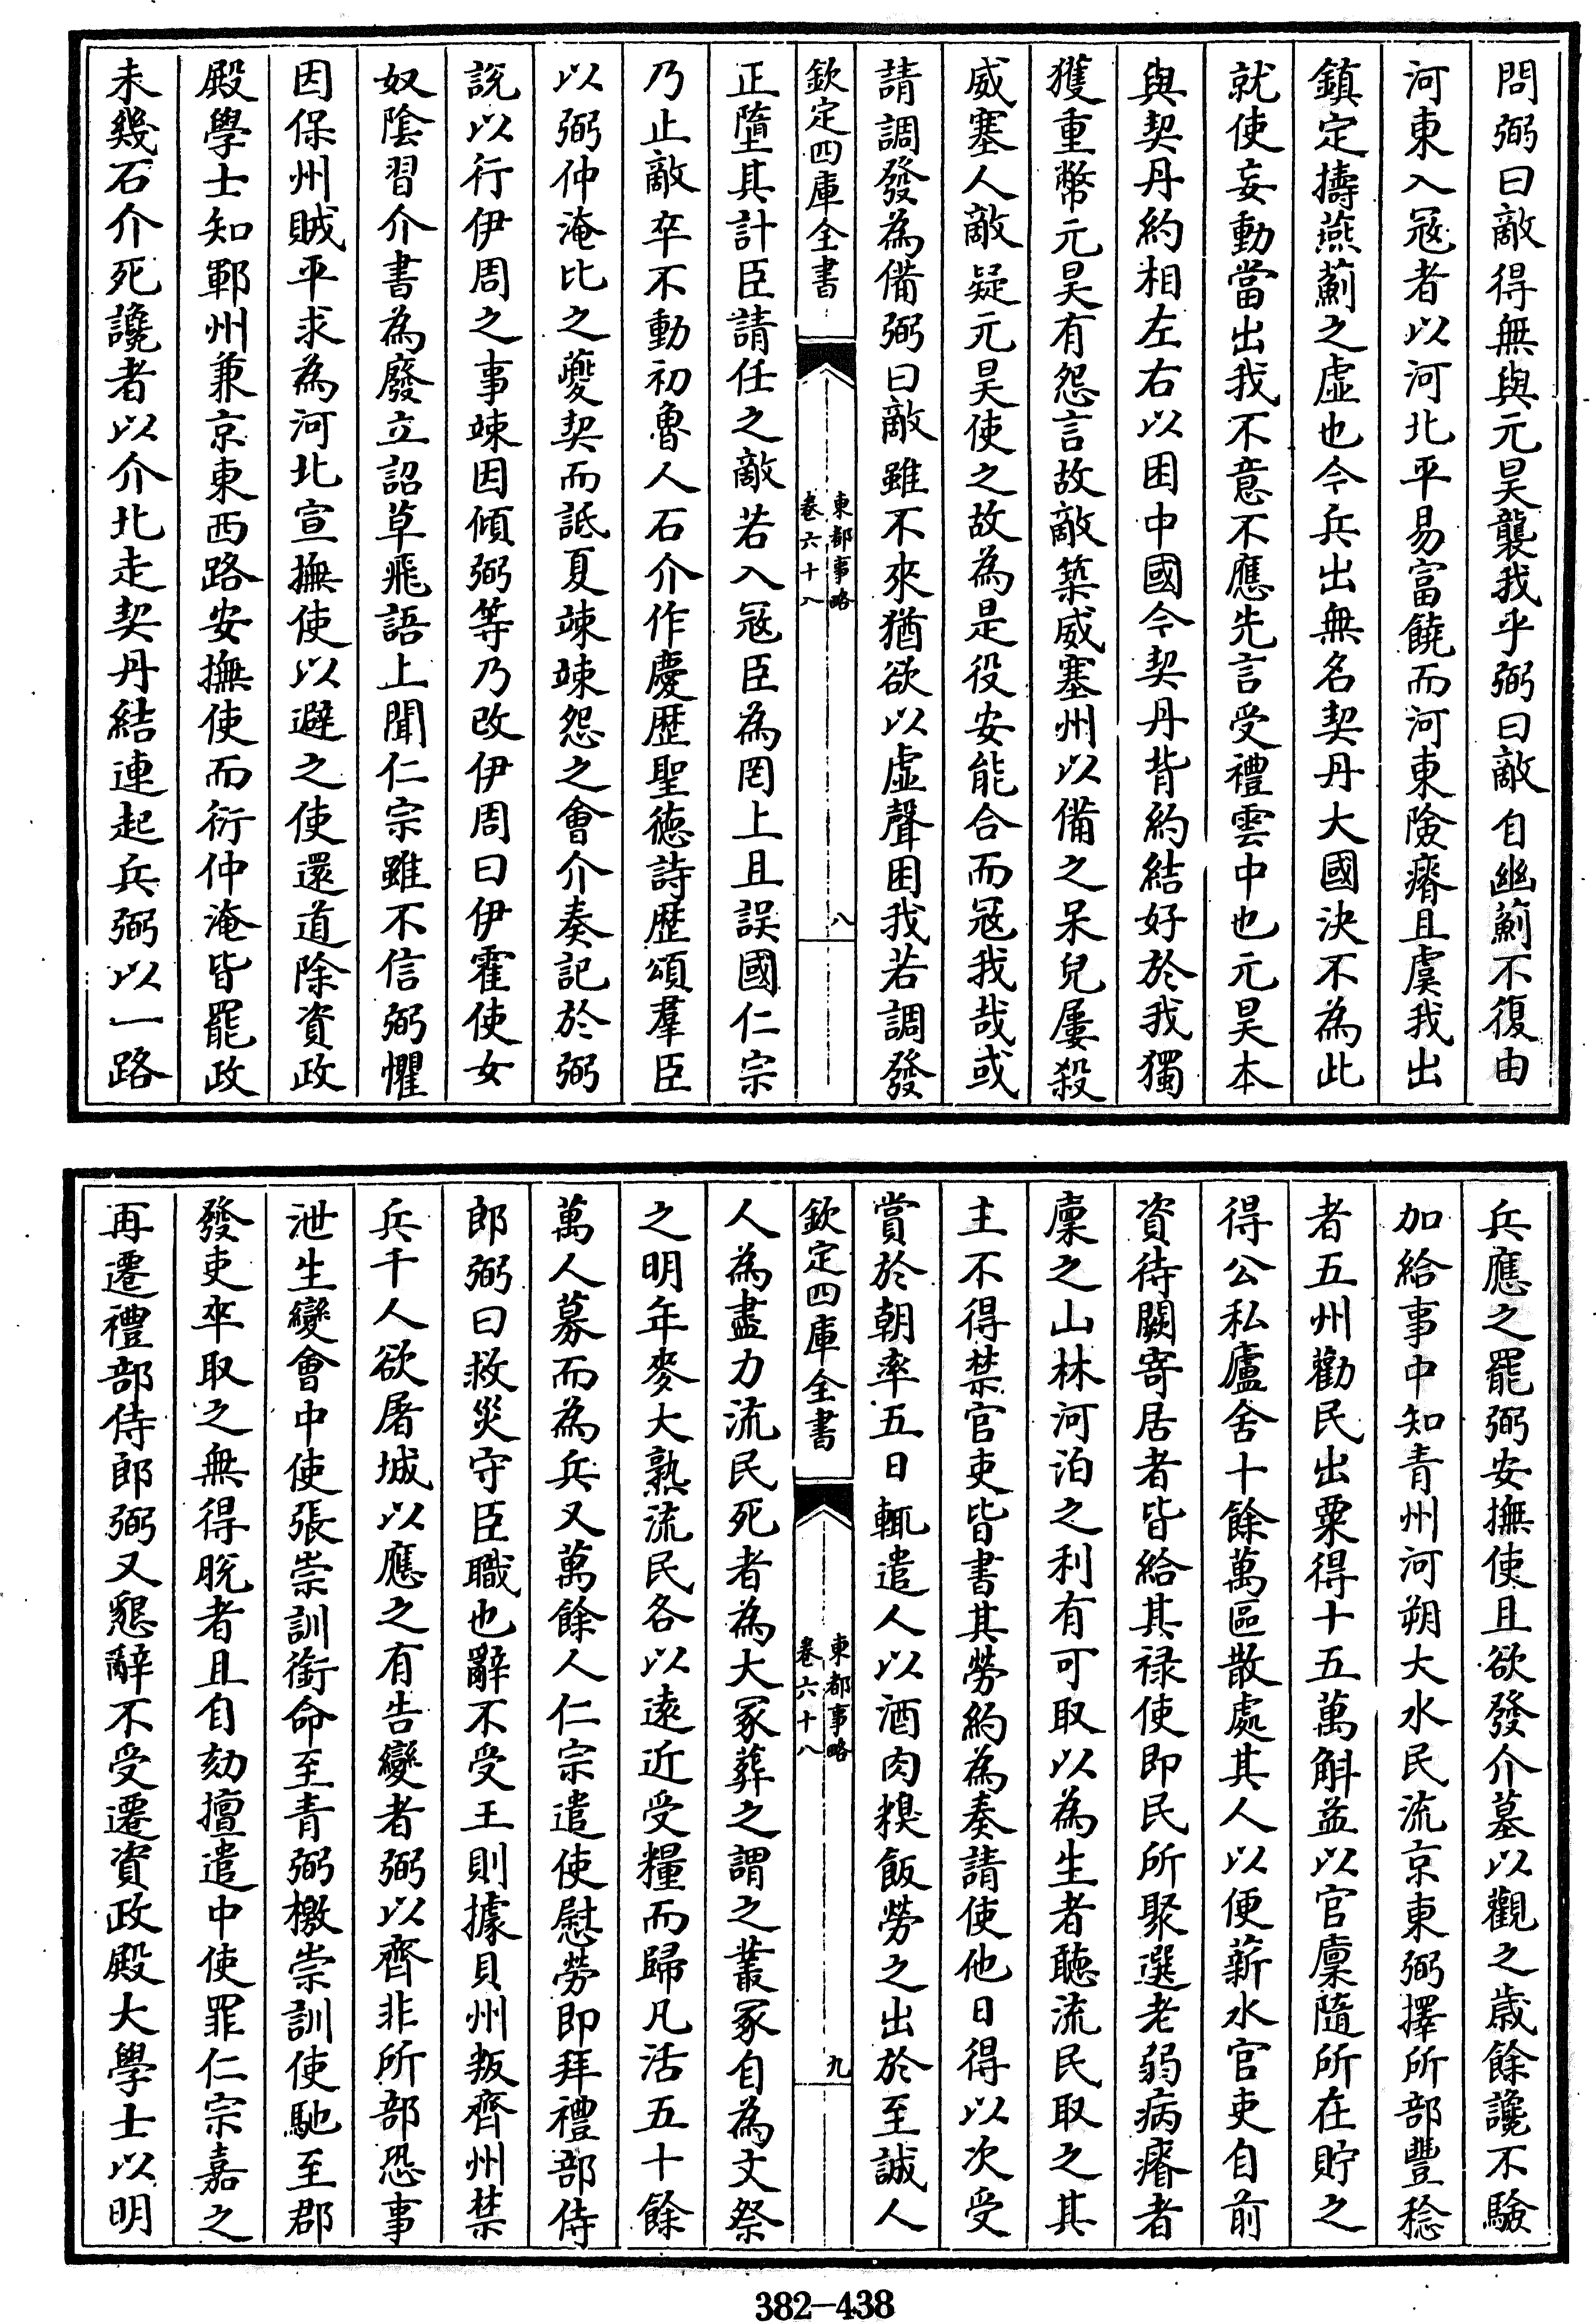 問弼曰敵得無與元昊襲我乎弼曰敵自幽薊不復由
河東入寇者以河北平易富饒而河東險瘠且虞我出
鎮定擣燕薊之虛也今兵出無名契丹大國決不為此
就使妄動當出我不意不應先言受禮雲中也元昊本
與契丹約相左右以困中國今契丹背約結好於我獨
獲重幣元昊有怨言故敵築威塞州以備之呆兒屢殺
威塞人敵疑元昊使之故為是役安能合而寇我哉或
請調發為備弼曰敵雖不來猶欲以虛聲困我若調發
欽定四庫全書
東都事略
卷六十八
八
正墮其計臣請任之敵若入寇臣為罔上且誤國仁宗
乃止敵卒不動初魯人石介作慶歷聖德詩歷頌羣臣
以弼仲淹比之夔契而詆夏竦竦怨之會介奏記於弼
說以行伊周之事竦因傾弼等乃改伊周曰伊霍使女
奴陰習介書為廢立詔草飛語上聞仁宗雖不信弼懼
因保州賊平求為河北宣撫使以避之使還道除資政
殿學士知鄆州兼京東西路安撫使而衍仲淹皆罷政
未幾石介死讒者以介北走契丹結連起兵弼以一路
兵應之罷弼安撫使且欲發介墓以觀之歲餘讒不驗
加給事中知青州河朔大水民流京東弼擇所部豐稔
者五州勸民出粟得十五萬斛益以官廩隨所在貯之
得公私廬舍十餘萬區散處其人以便薪水官吏自前
資待闕寄居者皆給其祿使即民所聚選老弱病瘠者
廩之山林河泊之利有可取以為生者聽流民取之其
主不得禁官吏皆書其勞約為奏請使他日得以次受
賞於朝率五日輒遣人以酒肉糗飯勞之出於至誠人
欽定四庫全書
東都事略
卷六十八
九
人為盡力流民死者為大冢葬之謂之叢冢自為文祭
之明年麥大熟流民各以遠近受糧而歸凡活五十餘
萬人募而為兵又萬餘人仁宗遣使慰勞即拜禮部侍
郎弼曰救災守臣職也辭不受王則據貝州叛齊州禁
兵千人欲屠城以應之有告變者弼以齊非所部恐事
泄生變會中使張崇訓銜命至青弼檄崇訓使馳至郡
發吏卒取之無得脫者且自劾擅遣中使罪仁宗嘉之
再遷禮部侍郎弼又懇辭不受遷資政殿大學士以明
382-438